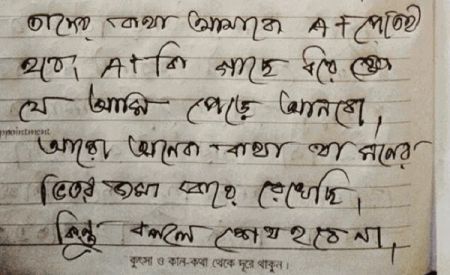 তাদের কথা আমাকে A+ পেতেই
হবে, A+ কি গাছে ধরে
যে আমি পেড়ে আনবো,
ppointment
আরো অনেক কথা যা মনের
ভিতর জমা করে রেখেছি,
কিন্তু বললে শেষ হবে না,
কুৎসা ও কান-কথা থেকে দূরে থাকুন।